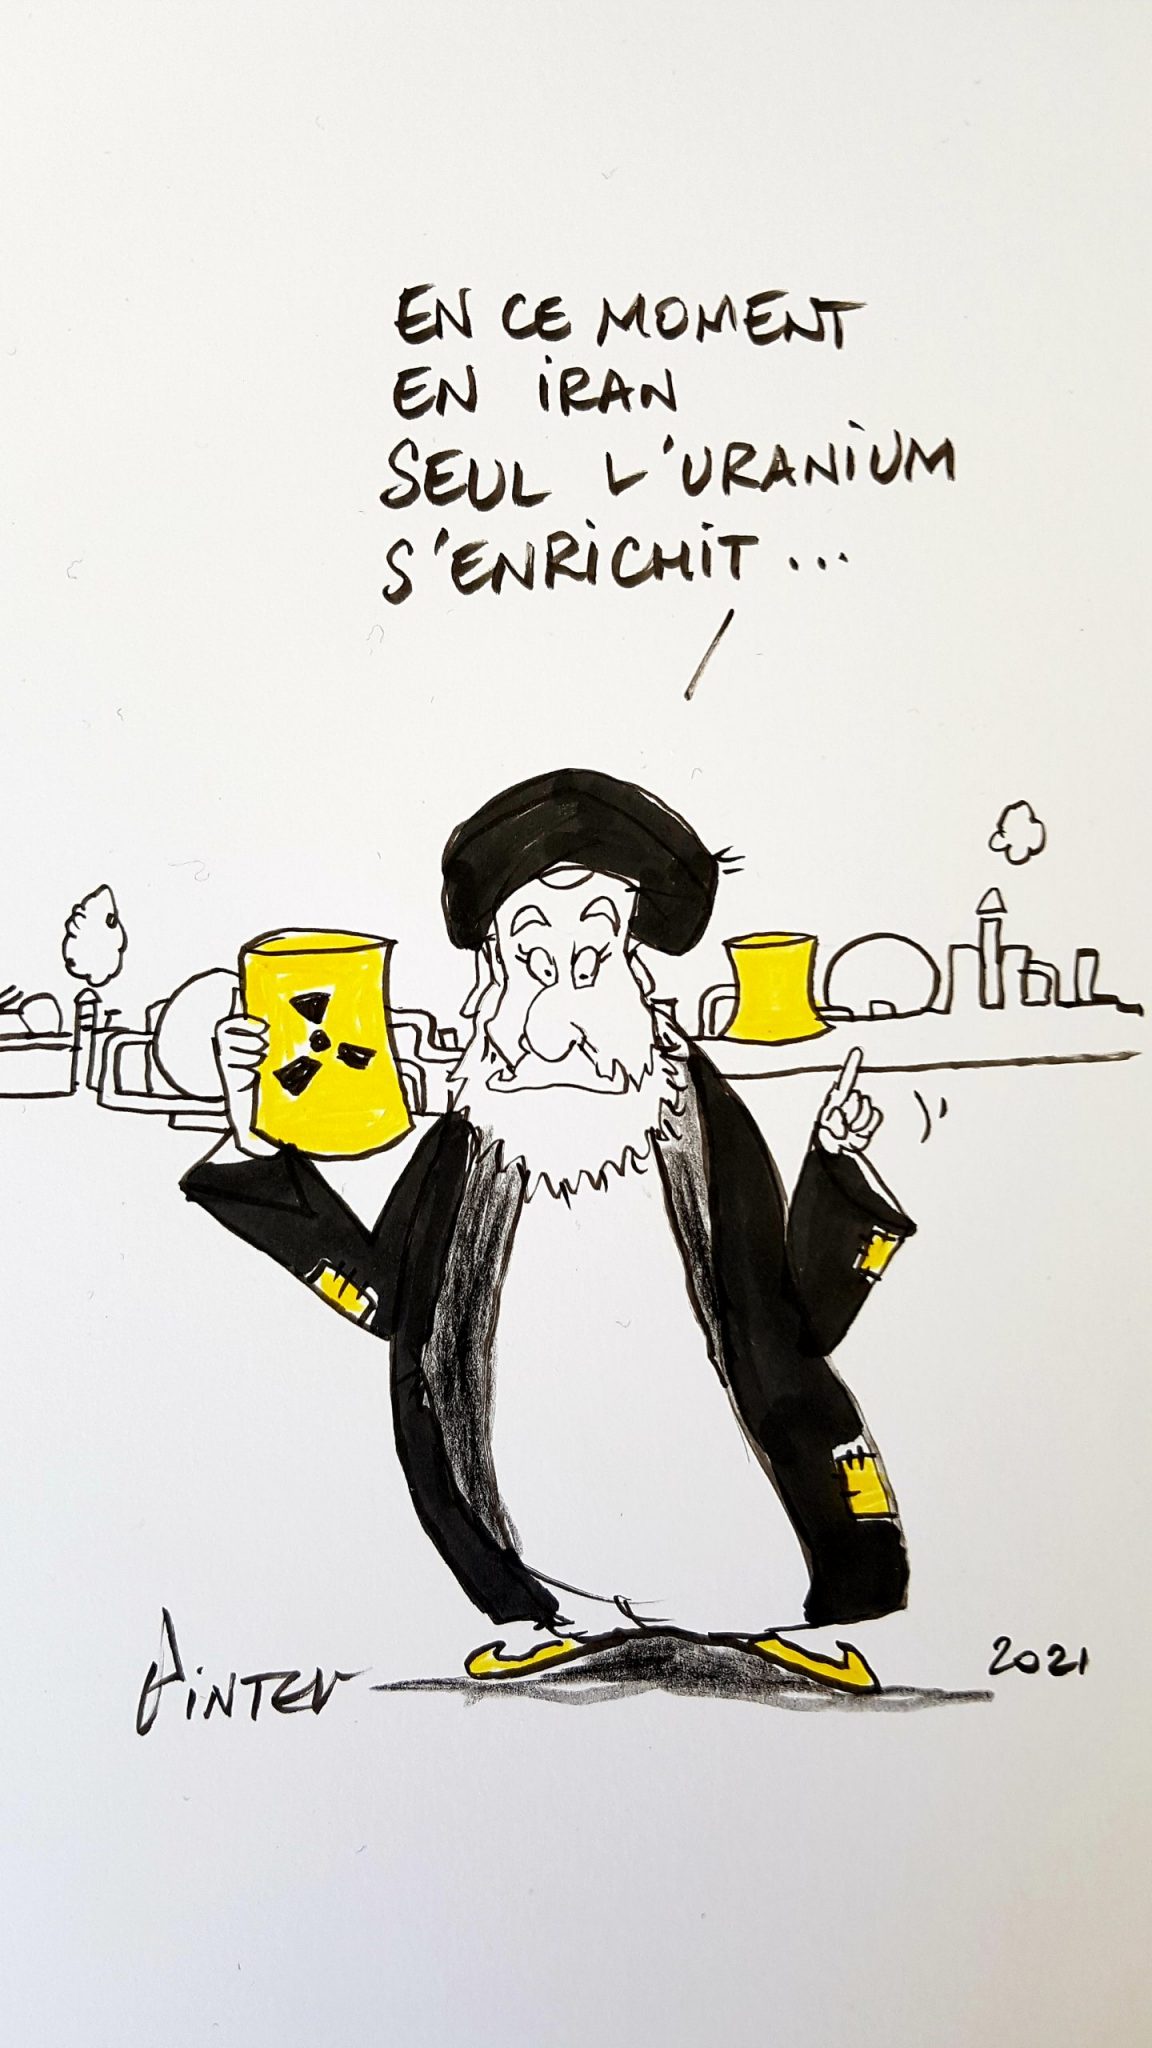 EN CE MOMENT
EN iRAN
SEUL L'URANiUM
S'ENRiCHiT...
PiNTER
2021